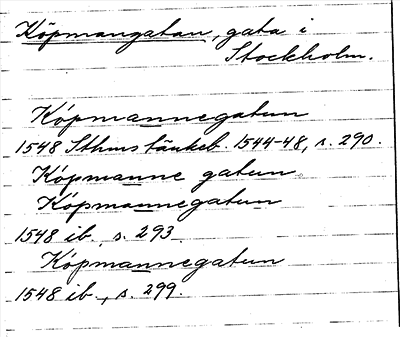 Köpmangatan, gata i
Stockholm.
Köpmannegatun
1548 Sthms tänkeb. 1544-48, s. 290.
Köpmanne gatun
Köpmannegatun
1548 ib. s. 293
Köpmannegatun
1548 ib., s. 299.